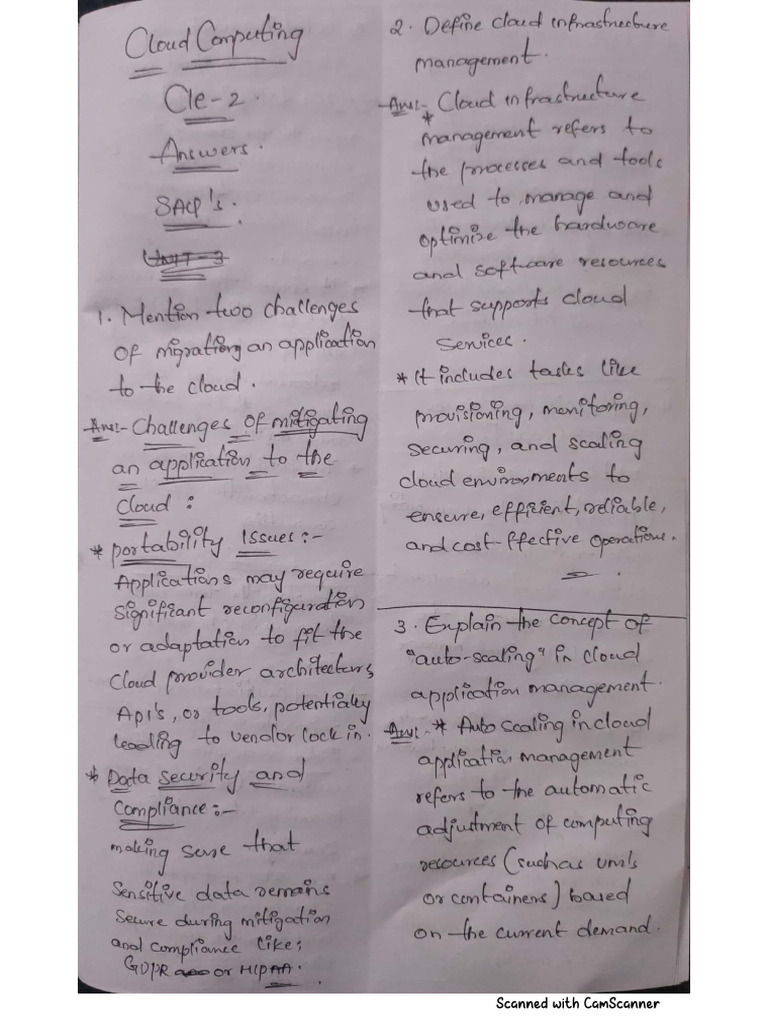 Cloud Computing
Cie-2.
Answers.
SAQ's.
UNIT-3
1. Mention two challenges
of migrationg an application
to the cloud.
Ans:- Challenges of mitigating
an application to the
Cloud:
* portability Issues:-
Applications may require
significant reconfiguration
or adaptation to fit the
Cloud provider architecturs,
Api's, or tools, potentially
leading to vendor lock in.
* Data security and
Compliance:-
making sure that
Sensitive data remains
Secure during mitigation
and compliance like;
GDPR or HIPAA.
2. Define cloud infrastructure
management.
Ans:- Cloud infrastructure
* management refers to
the processes and tools
used to manage and
optimise the hardware
and software resources
that supports cloud
Services.
* It includes tasks like
provisioning, monitoring,
securing, and scaling
cloud environments to
ensure, efficient, reliable,
and cost-ffective operations.
3. Explain the concept of
"auto-scaling" in cloud
application management.
Ans:- * Auto scaling in cloud
application management
refers to the automatic
adjustment of computing
resources (such as
or containers) based
on the current demand.
Scanned with CamScanner